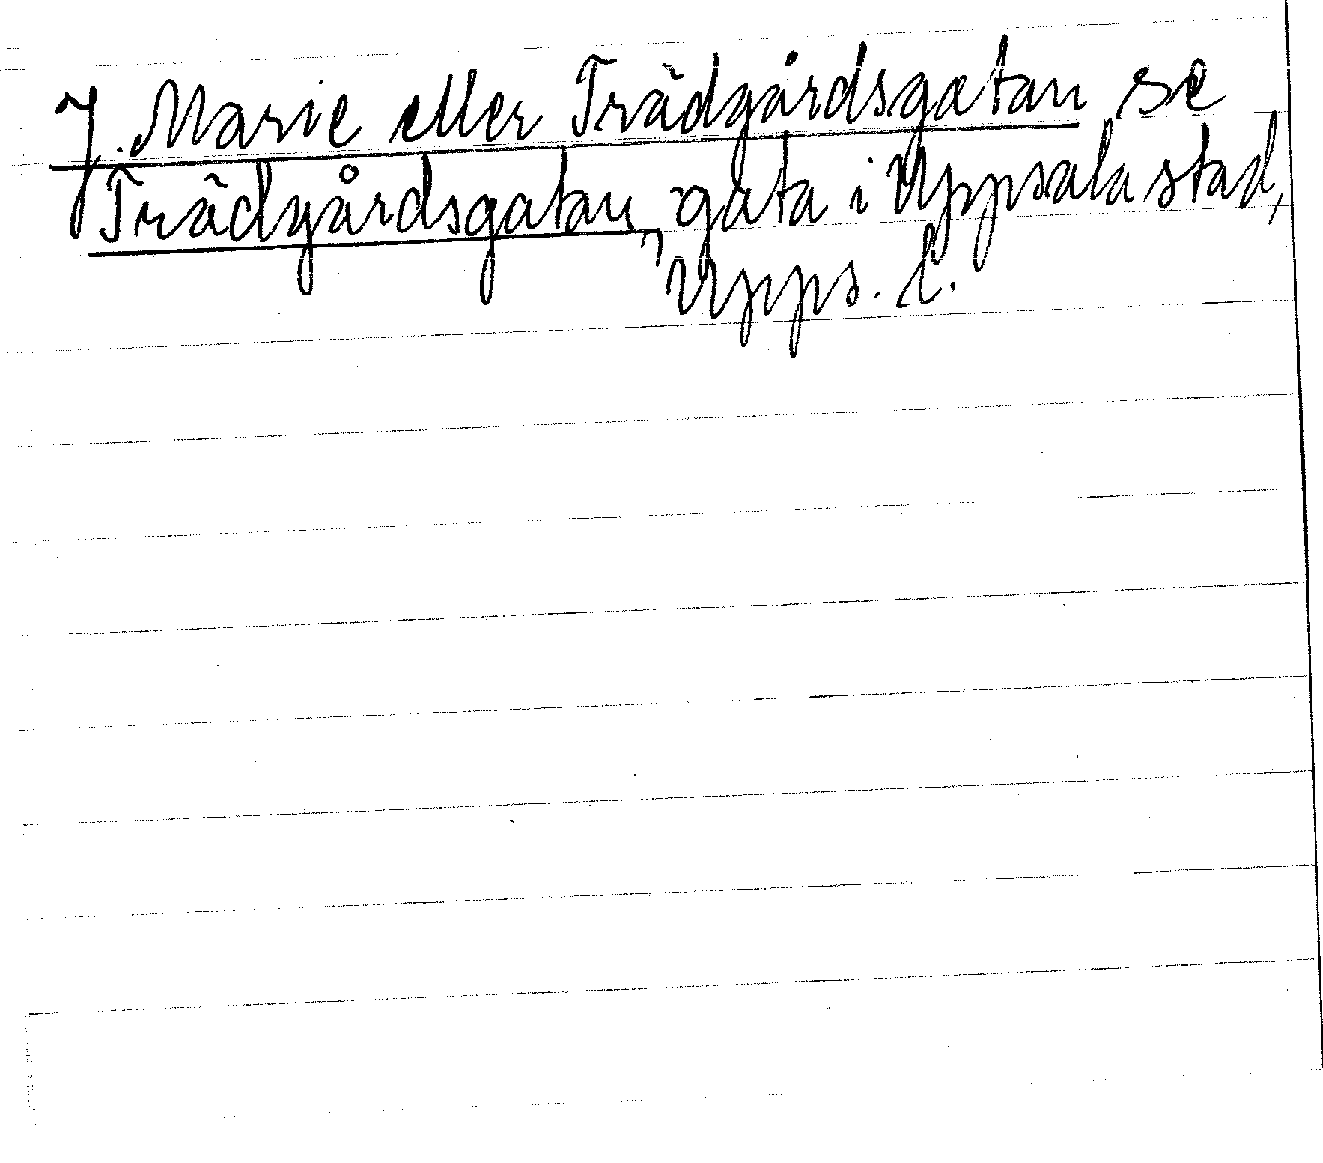 J. Marie eller Trädgårdsgatan se
Trädgårdsgatan, gata i Uppsala stad,
Upps. l.